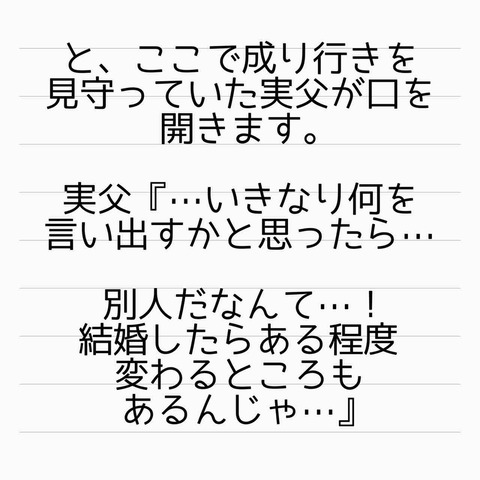 と、ここで成り行きを
見守っていた実父が口を
開きます。
実父『…いきなり何を
言い出すかと思ったら…
別人だなんて…！
結婚したらある程度
変わるところも
あるんじゃ…』